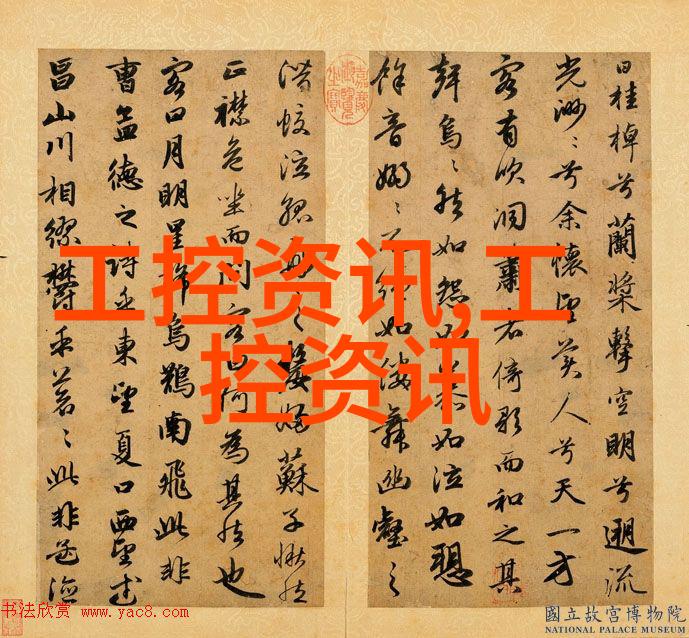 曰桂棹兮蘭槳擊空明兮遡流
光渺〻兮余懷望美人兮天一方
客有吹洞簫者倚歌而和之其
聲烏〻然如怨如慕如泣如愬
餘音嫋〻不絕如縷舞幽壑之
潛蛟泣孤舟之嫠婦蘇子愀然
正襟危坐而問客曰何為其然也
客曰月明星稀烏鵲南飛此非
曹孟德之詩乎東望夏口西望武
昌山川相繆鬱乎蒼〻此非孟德
嘉慶御覽之寶
工控资讯,工
控资讯
书法欣赏
www.yac8.com
國立故宮博物院
NATIONAL PALACE MUSEUM